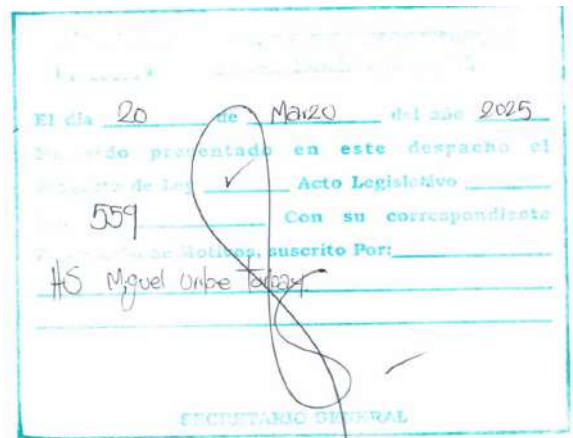 El día 20 de Marzo del año 2025
sido presentado en este despacho el
de Ley ✓ Acto Legislativo
559 Con su correspondiente
Motivos, suscrito Por:
HS Miguel Uribe Turbay
SECRETARIO GENERAL